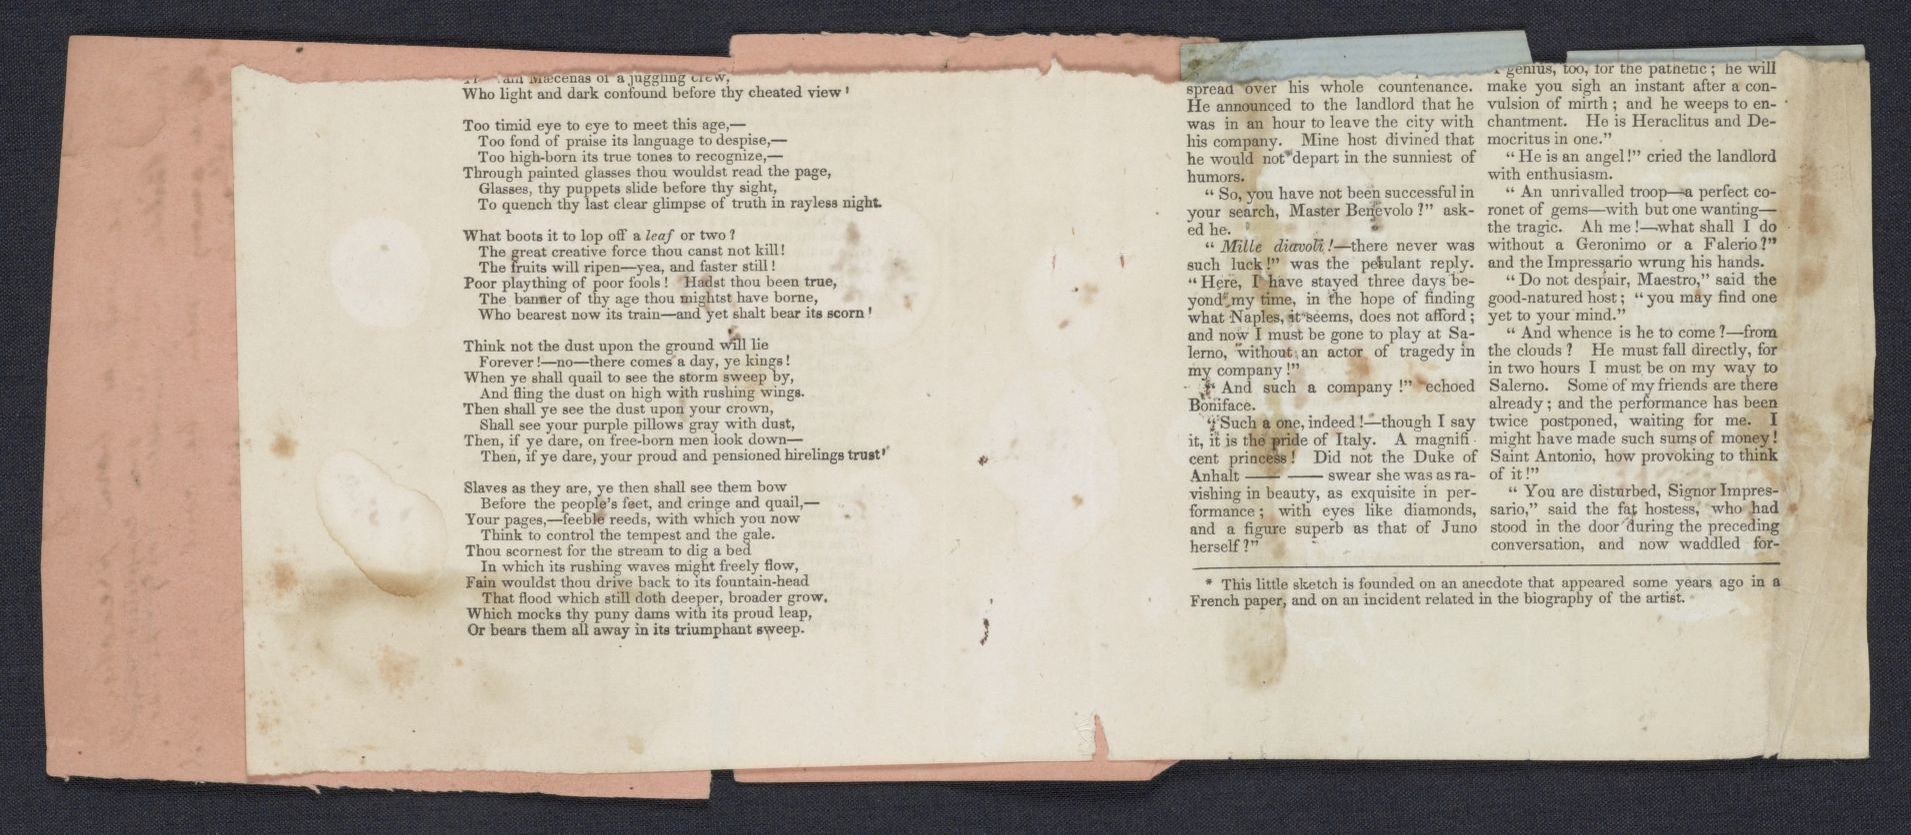 Mæcenas of a juggling crew,
Who light and dark confound before thy cheated view!
Too timid eye to eye to meet this age,—
Too fond of praise its language to despise,—
Too high-born its true tones to recognize,—
Through painted glasses thou wouldst read the page,
Glasses, thy puppets slide before thy sight,
To quench thy last clear glimpse of truth in rayless night.
What boots it to lop off a leaf or two?
The great creative force thou canst not kill!
The fruits will ripen—yea, and faster still!
Poor plaything of poor fools! Hadst thou been true,
The banner of thy age thou mightst have borne,
Who bearest now its train—and yet shalt bear its scorn!
Think not the dust upon the ground will lie
Forever!—no—there comes a day, ye kings!
When ye shall quail to see the storm sweep by,
And fling the dust on high with rushing wings.
Then shall ye see the dust upon your crown,
Shall see your purple pillows gray with dust,
Then, if ye dare, on free-born men look down—
Then, if ye dare, your proud and pensioned hirelings trust!
Slaves as they are, ye then shall see them bow
Before the people's feet, and cringe and quail,—
Your pages,—feeble reeds, with which you now
Think to control the tempest and the gale.
Thou scornest for the stream to dig a bed
In which its rushing waves might freely flow,
Fain wouldst thou drive back to its fountain-head
That flood which still doth deeper, broader grow,
Which mocks thy puny dams with its proud leap,
Or bears them all away in its triumphant sweep.
spread over his whole countenance.
He announced to the landlord that he
was in an hour to leave the city with
his company. Mine host divined that
he would not depart in the sunniest of
humors.
“So, you have not been successful in
your search, Master Benevolo?” ask-
ed he.
“Mille diavoli!—there never was
such luck!” was the petulant reply.
“Here, I have stayed three days be-
yond my time, in the hope of finding
what Naples, it seems, does not afford;
and now I must be gone to play at Sa-
lerno, without an actor of tragedy in
my company!”
“And such a company!” echoed
Boniface.
“Such a one, indeed!—though I say
it, it is the pride of Italy. A magnifi-
cent princess! Did not the Duke of
Anhalt —— —— swear she was as ra-
vishing in beauty, as exquisite in per-
formance; with eyes like diamonds,
and a figure superb as that of Juno
herself?”
genius, too, for the pathetic; he will
make you sigh an instant after a con-
vulsion of mirth; and he weeps to en-
chantment. He is Heraclitus and De-
mocritus in one.”
“He is an angel!” cried the landlord
with enthusiasm.
“An unrivalled troop—a perfect co-
ronet of gems—with but one wanting—
the tragic. Ah me!—what shall I do
without a Geronimo or a Falerio?”
and the Impressario wrung his hands.
“Do not despair, Maestro,” said the
good-natured host; “you may find one
yet to your mind.”
“And whence is he to come?—from
the clouds? He must fall directly, for
in two hours I must be on my way to
Salerno. Some of my friends are there
already; and the performance has been
twice postponed, waiting for me. I
might have made such sums of money!
Saint Antonio, how provoking to think
of it!”
“You are disturbed, Signor Impres-
sario,” said the fat hostess, who had
stood in the door during the preceding
conversation, and now waddled for-
* This little sketch is founded on an anecdote that appeared some years ago in a
French paper, and on an incident related in the biography of the artist.